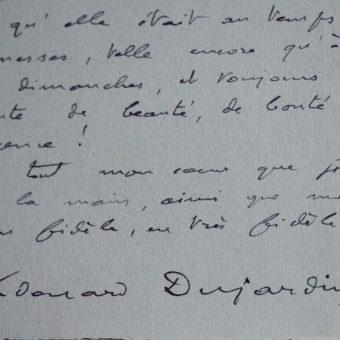 qu'elle était au temps
esses, telle encore qu'à
dimanches, et toujours
te de beauté, de bonté
ence !
tout mon cœur que je
la main, ainsi que mo
fidèle, en très fidèle
Édouard Dujardin